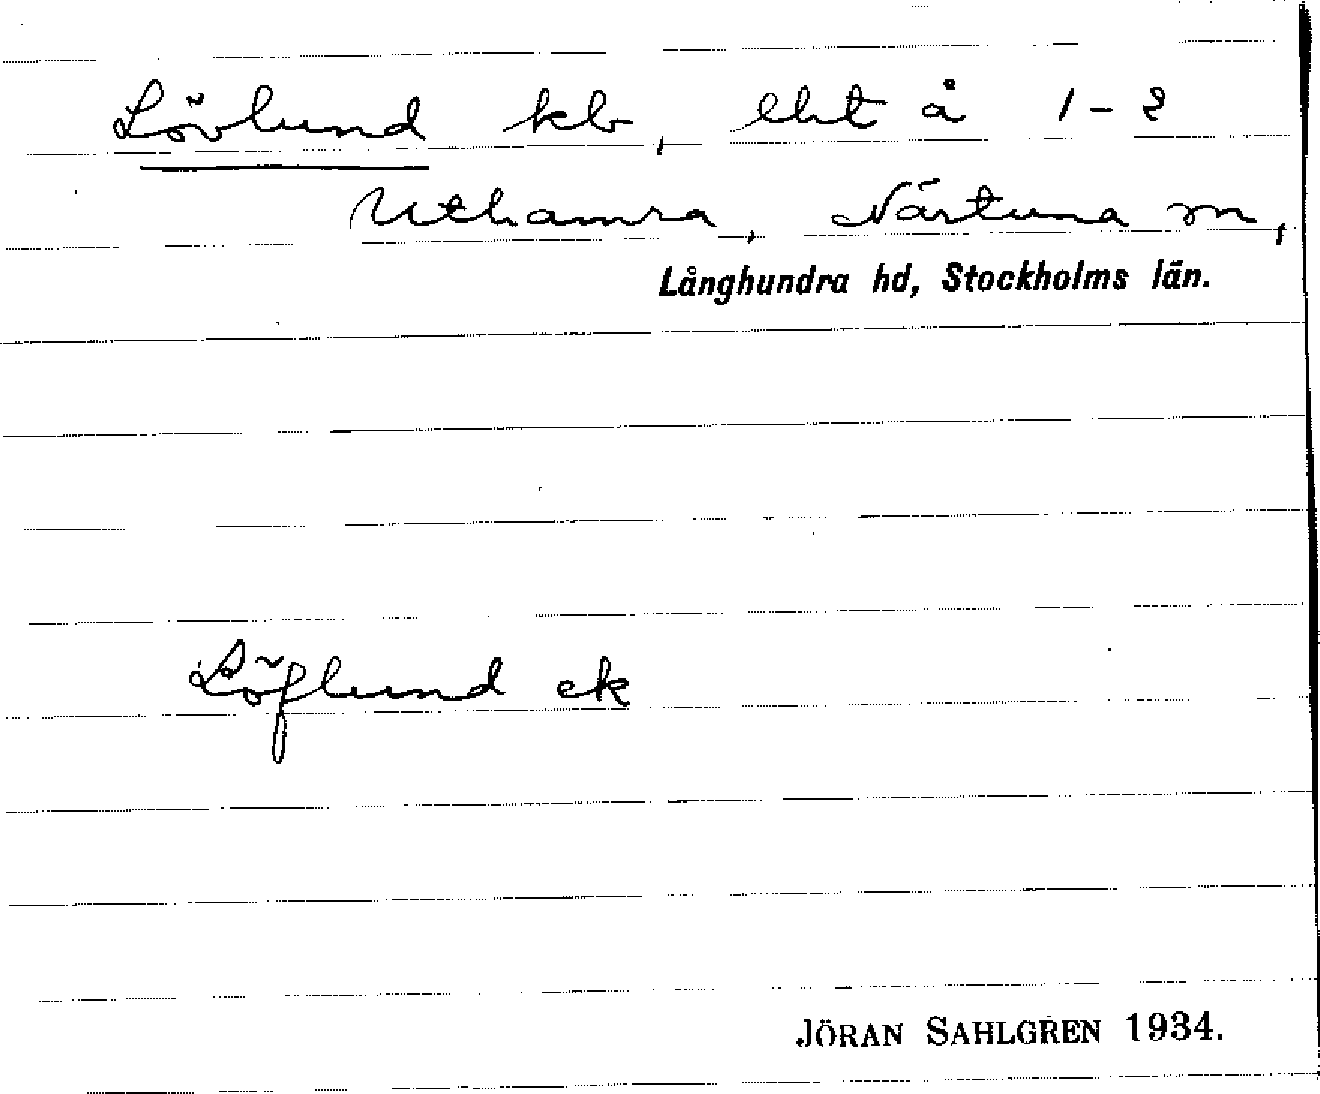 Lövlund kb, lht å 1-2
Uthamra, Närtuna sn,
Långhundra hd, Stockholms län.
Löflund ek
JÖRAN SAHLGREN 1934.